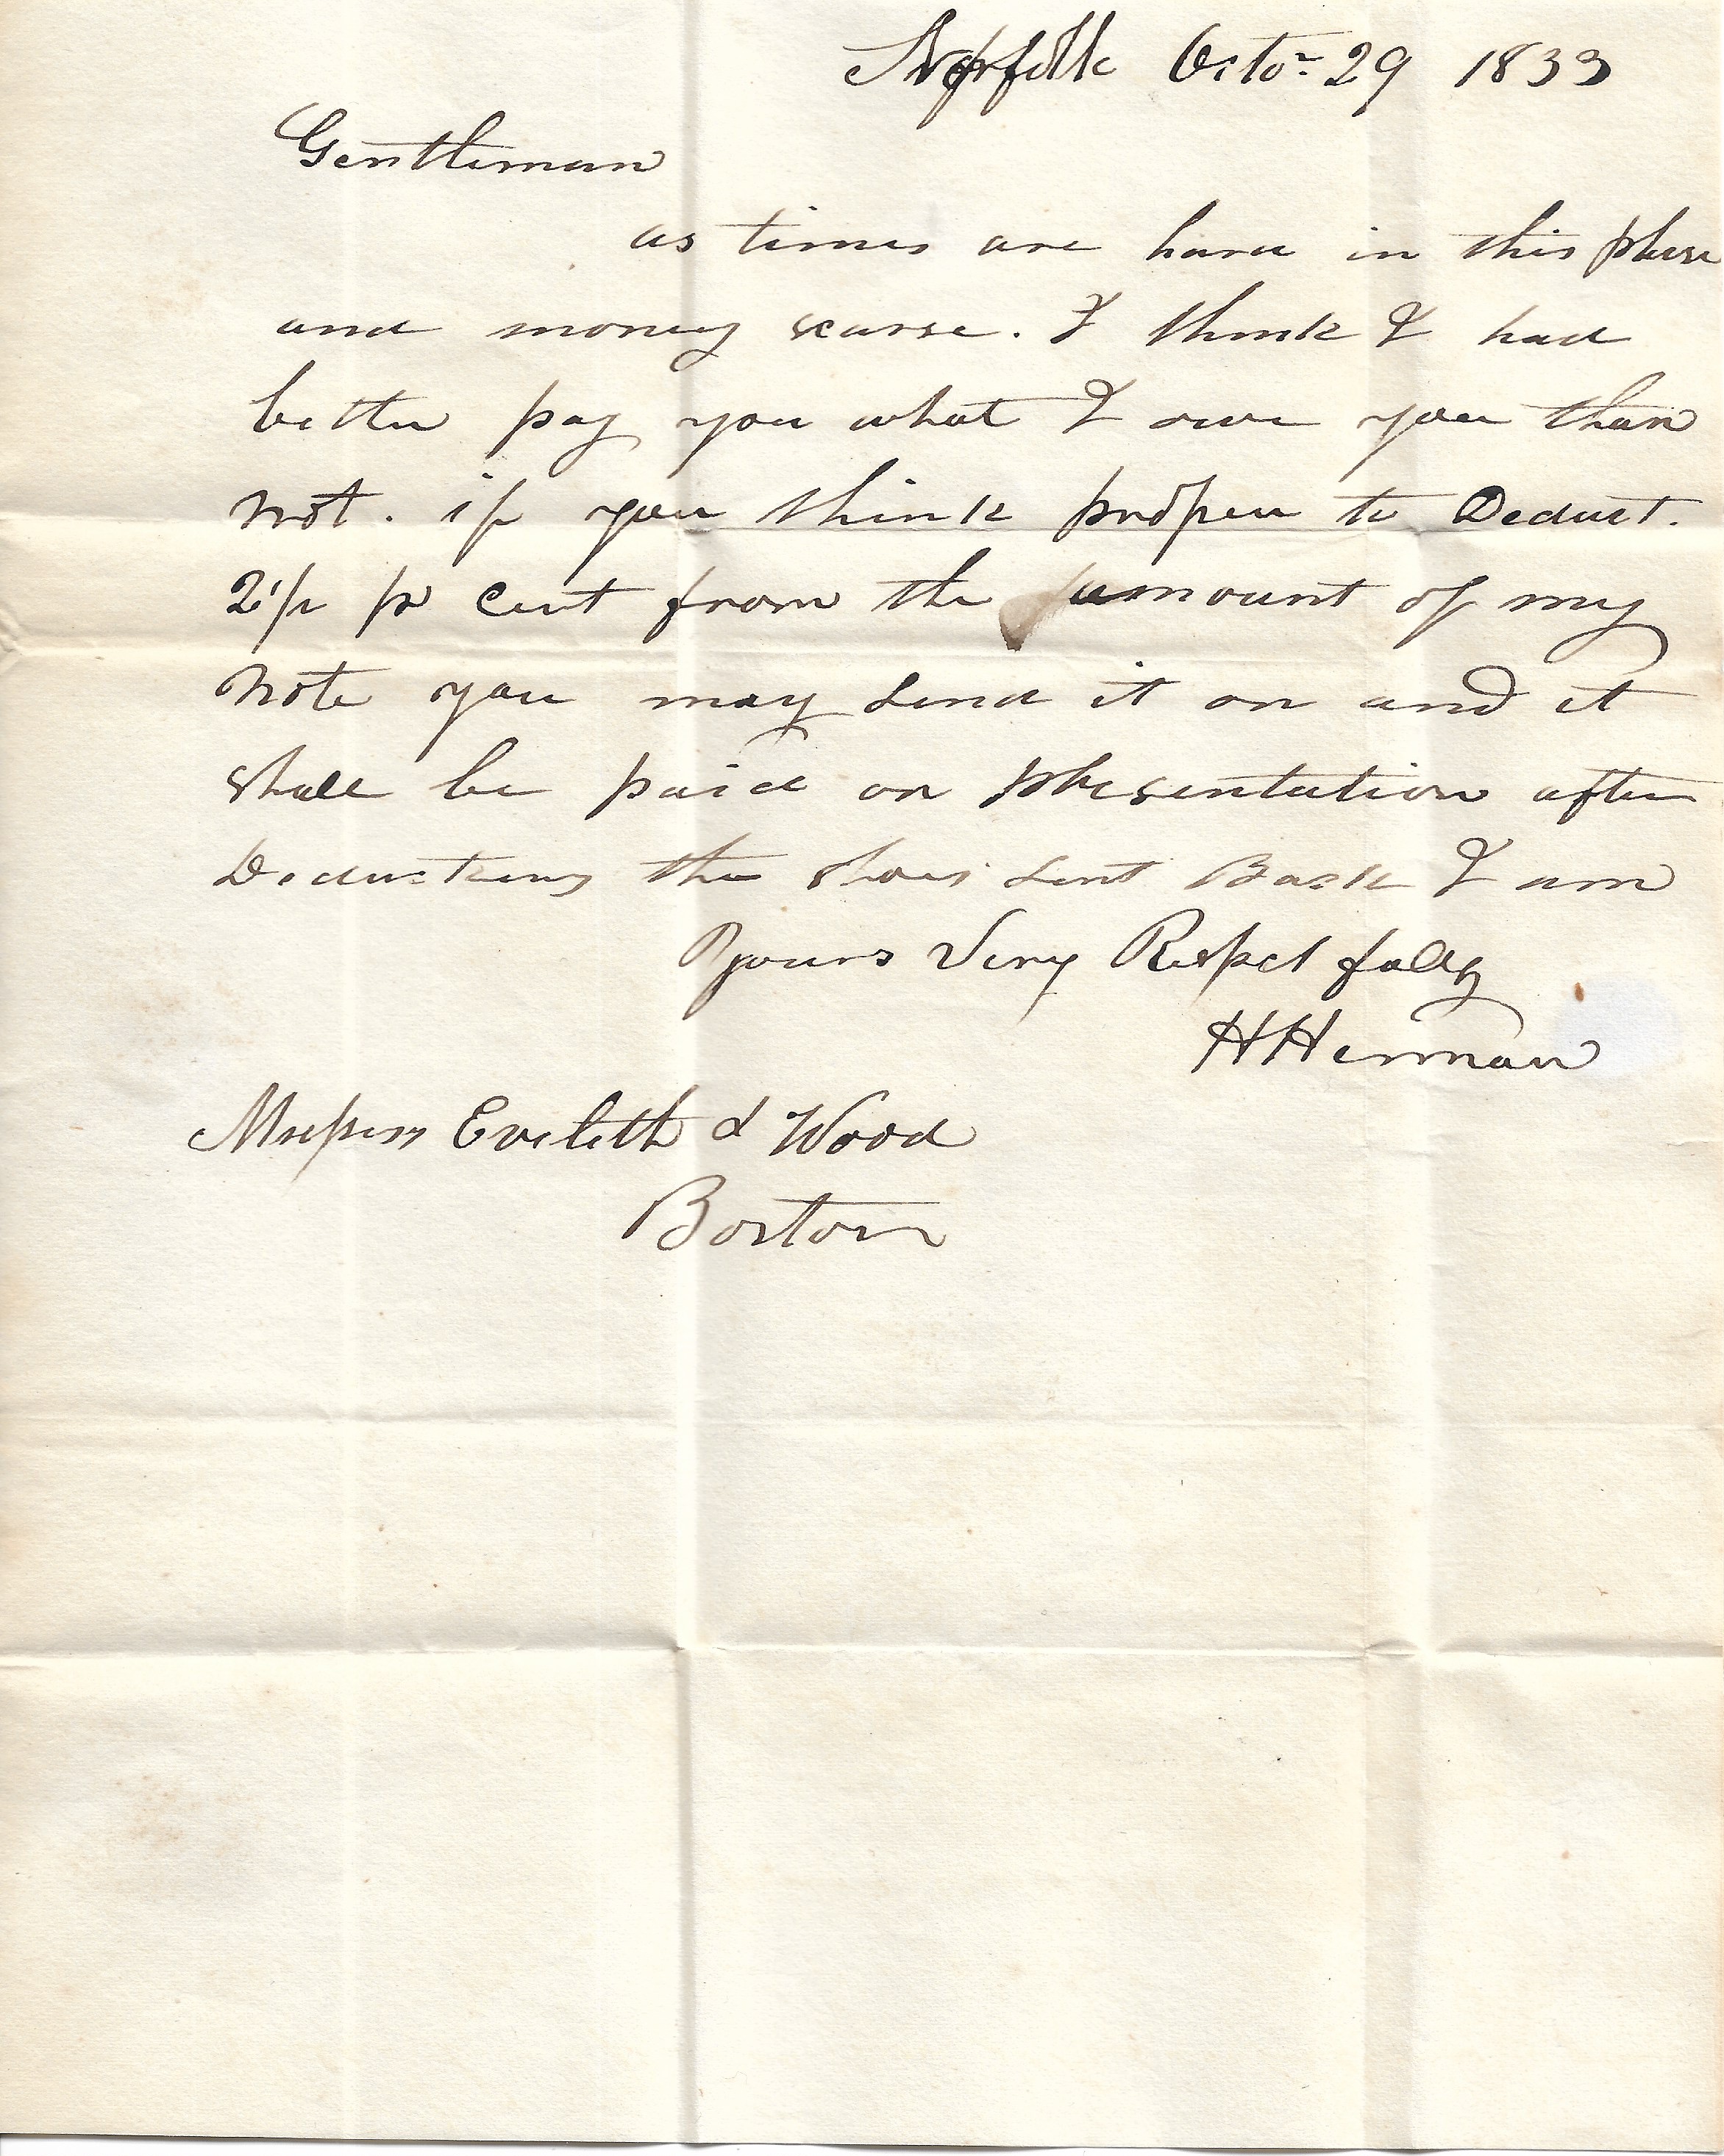 Norfolk Octor 29 1833
Gentleman
as times are hard in this place
and money scarse. I think I had
better pay you what I owe you than
not. if you think proper to Deduct.
2 1/2 pr Cent from the amount of my
Note you may send it on and it
shall be paid on presentation after
Deducting the shoes sent Back I am
yours Very Respectfully
H Herman
Messers Eveleth & Wood
Boston